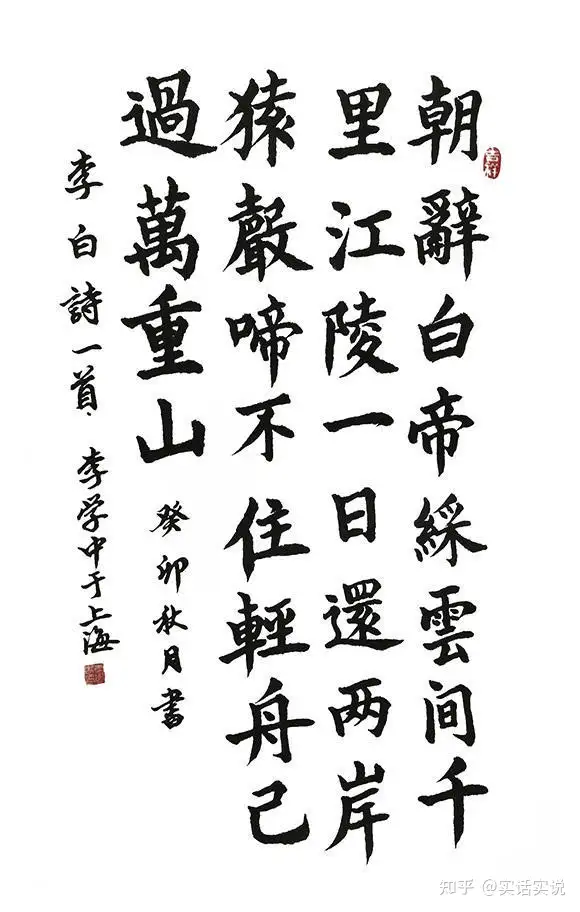 朝辭白帝綵雲間千
里江陵一日還两岸
猿聲啼不住輕舟已
過萬重山
癸卯秋月書
李白詩一首、李学中于上海
吉祥
知乎 @实话实说